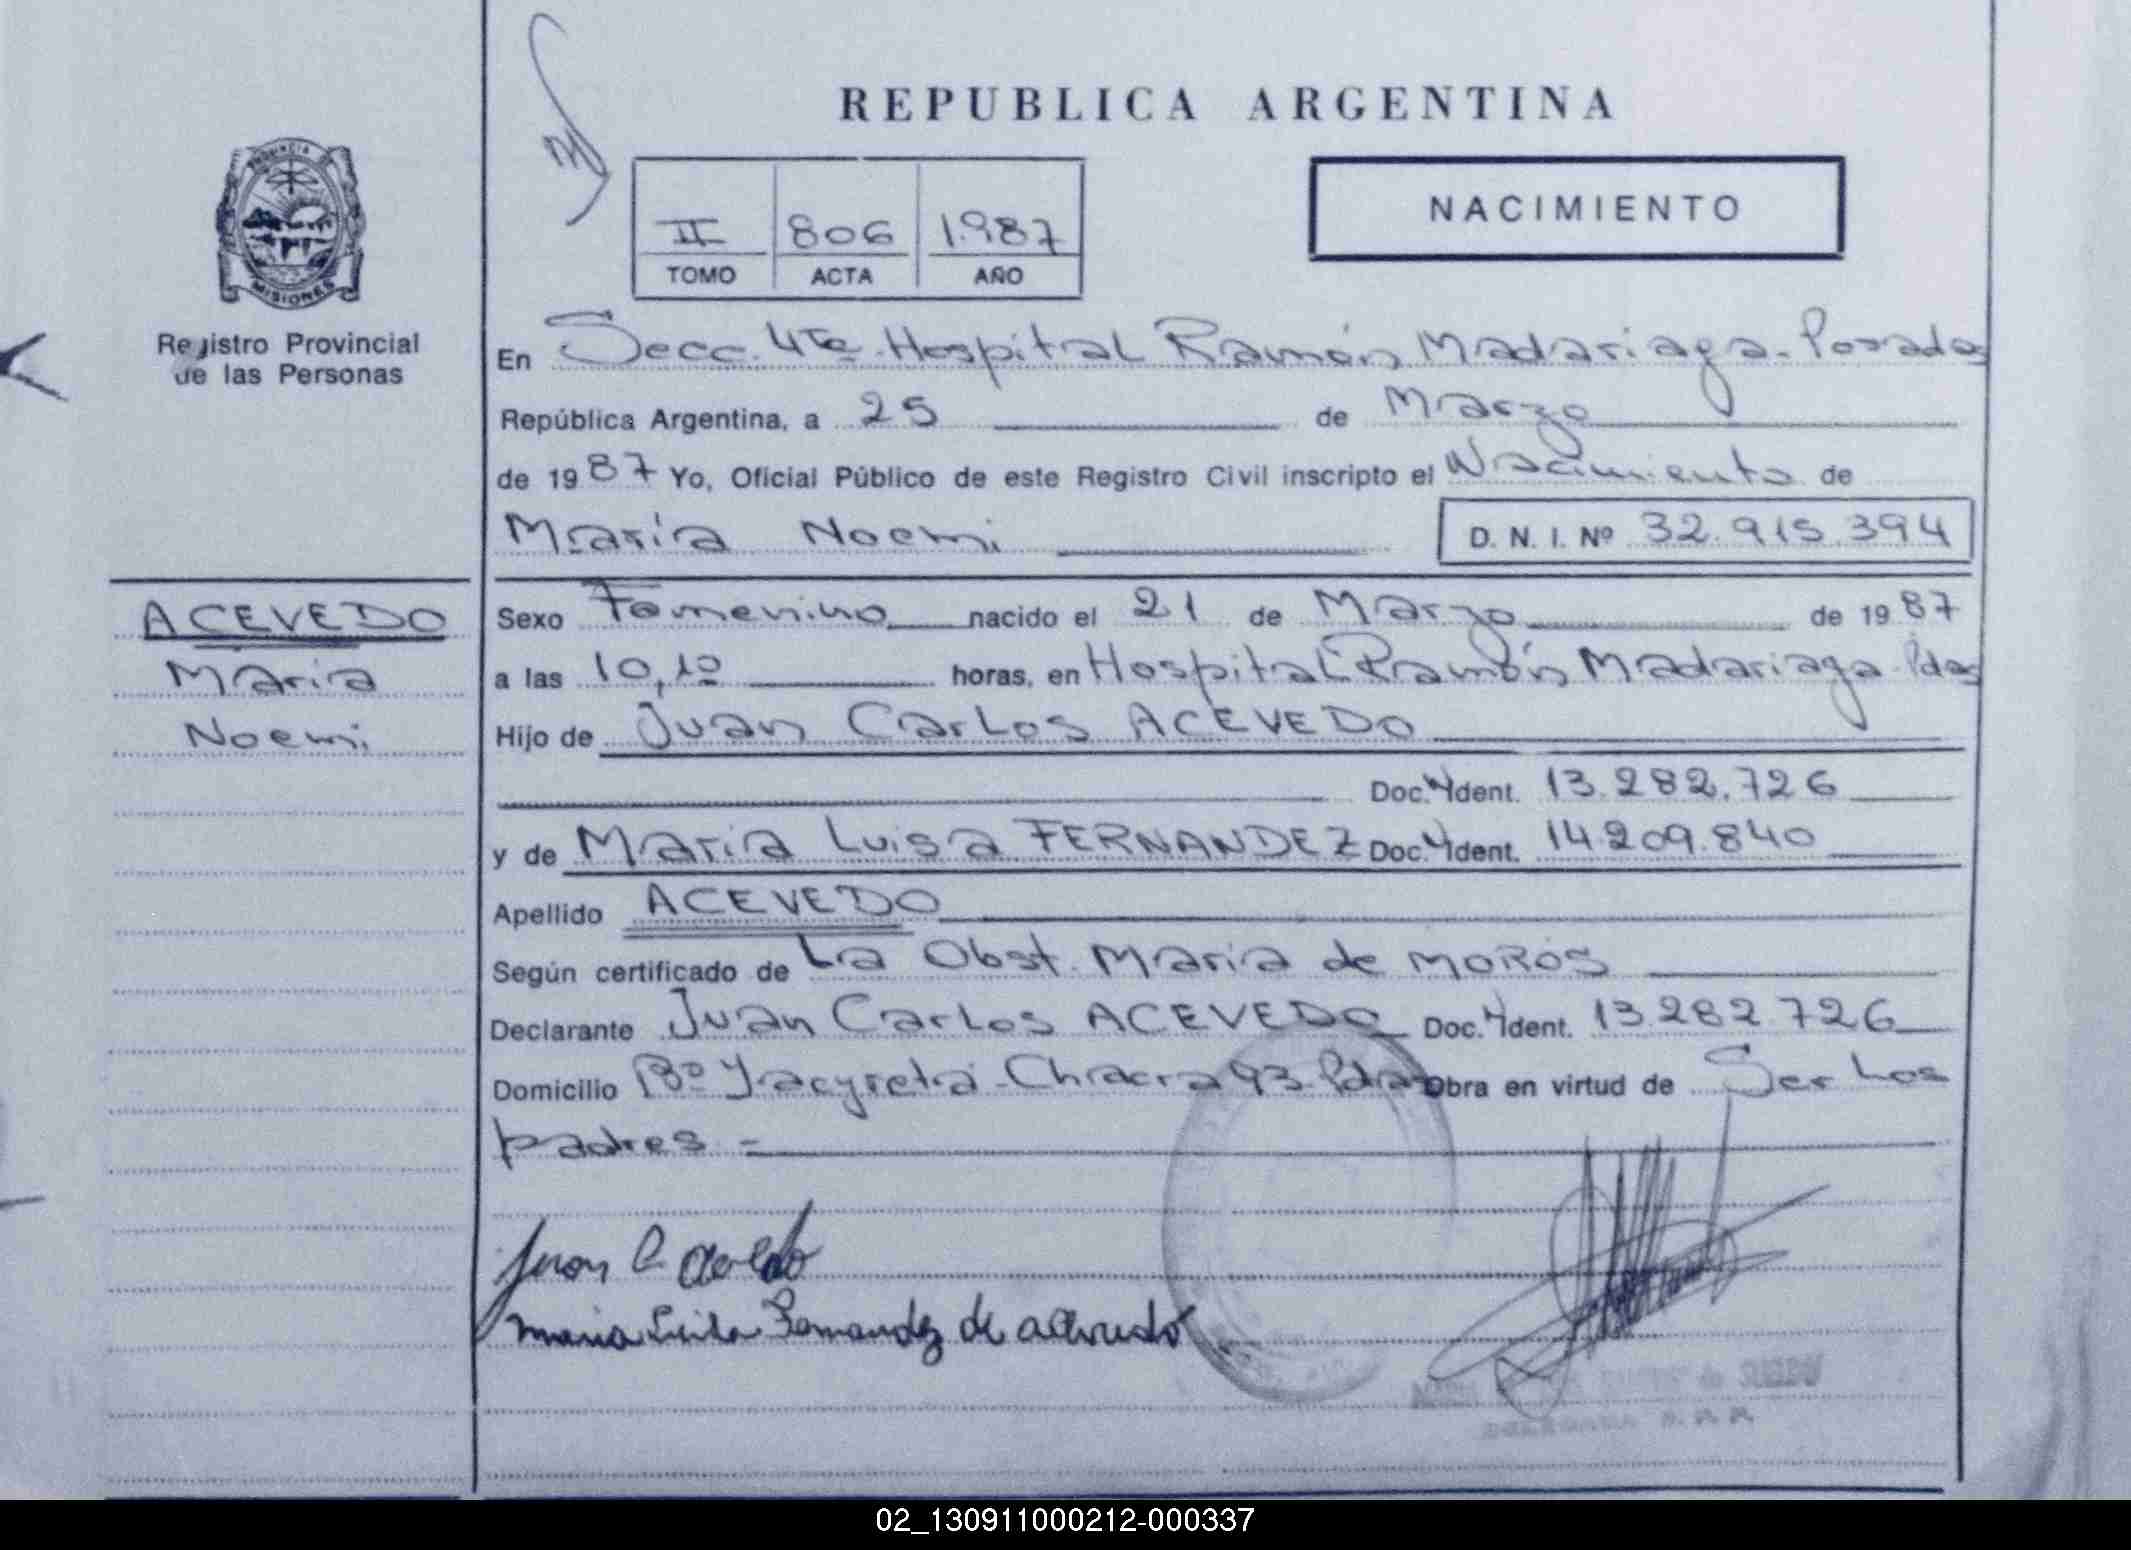 REPUBLICA ARGENTINA
NACIMIENTO
II 806 1.987
TOMO ACTA AÑO
PROVINCIA DE
MISIONES
Registro Provincial
de las Personas
En Secc. 4Ta. Hospital Ramón Madariaga - Posadas
República Argentina, a 25 de Marzo
de 1987 Yo, Oficial Público de este Registro Civil inscripto el Nacimiento de
María Noemi D. N. I. Nº 32.915.394
ACEVEDO
Maria
Noemi
Sexo Femenino nacido el 21 de Marzo de 1987
a las 10,10 horas, en Hospital Ramón Madariaga Pdas
Hijo de Juan Carlos ACEVEDO
Doc. Ident. 13.282.726
y de Maria Luisa FERNANDEZ Doc. Ident. 14.209.840
Apellido ACEVEDO
Según certificado de La Obst. Maria de MOROS
Declarante Juan Carlos ACEVEDO Doc. Ident. 13.282.726
Domicilio Bº Yacyreta - Chacra 93 - Pdas Obra en virtud de Ser Los
padres =
Juan C. Acevedo
Maria Luisa Fernandez de acevedo
02_130911000212-000337